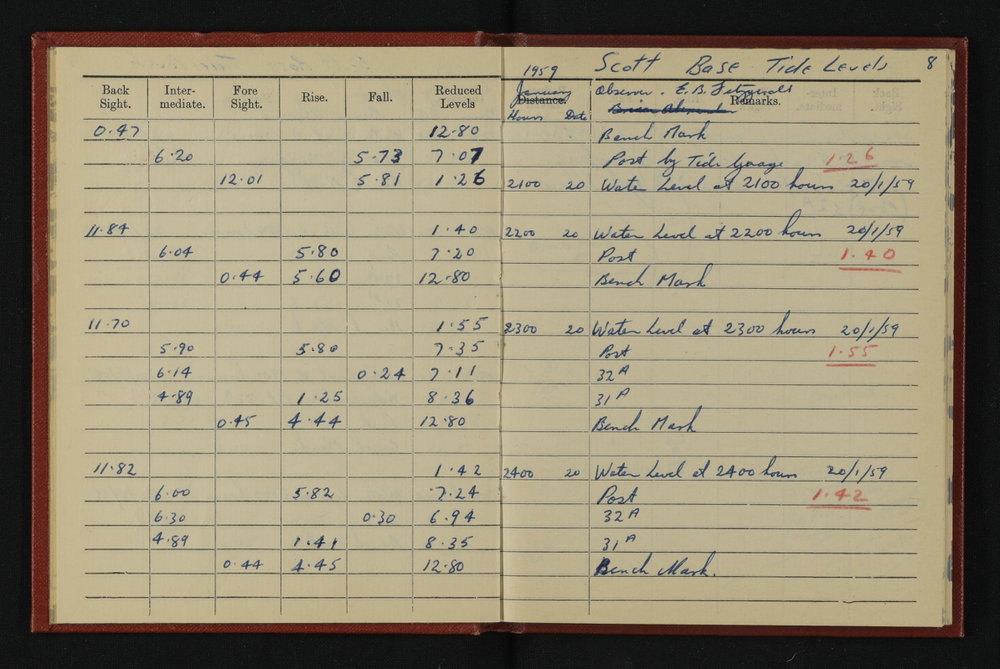 1959 Scott Base Tide Levels 8
Back Sight. Inter-mediate. Fore Sight. Rise. Fall. Reduced Levels January Distance. Observer. E. B. Fitzgerald Remarks.
Hours Date
0.47 12.80 Bench Mark
6.20 5.73 7.07 Post by Tide Guage 1.26
12.01 5.81 1.26 2100 20 Water Level at 2100 hours 20/1/59
11.84 1.40 2200 20 Water Level at 2200 hours 20/1/59
6.04 5.80 7.20 Post 1.40
0.44 5.60 12.80 Bench Mark
11.70 1.55 2300 20 Water Level at 2300 hours 20/1/59
5.90 5.80 7.35 Post 1.55
6.14 0.24 7.11 32A
4.89 1.25 8.36 31A
0.45 4.44 12.80 Bench Mark
11.82 1.42 2400 20 Water Level at 2400 hours 20/1/59
6.00 5.82 7.24 Post 1.42
6.30 0.30 6.94 32A
4.89 1.41 8.35 31A
0.44 4.45 12.80 Bench Mark.